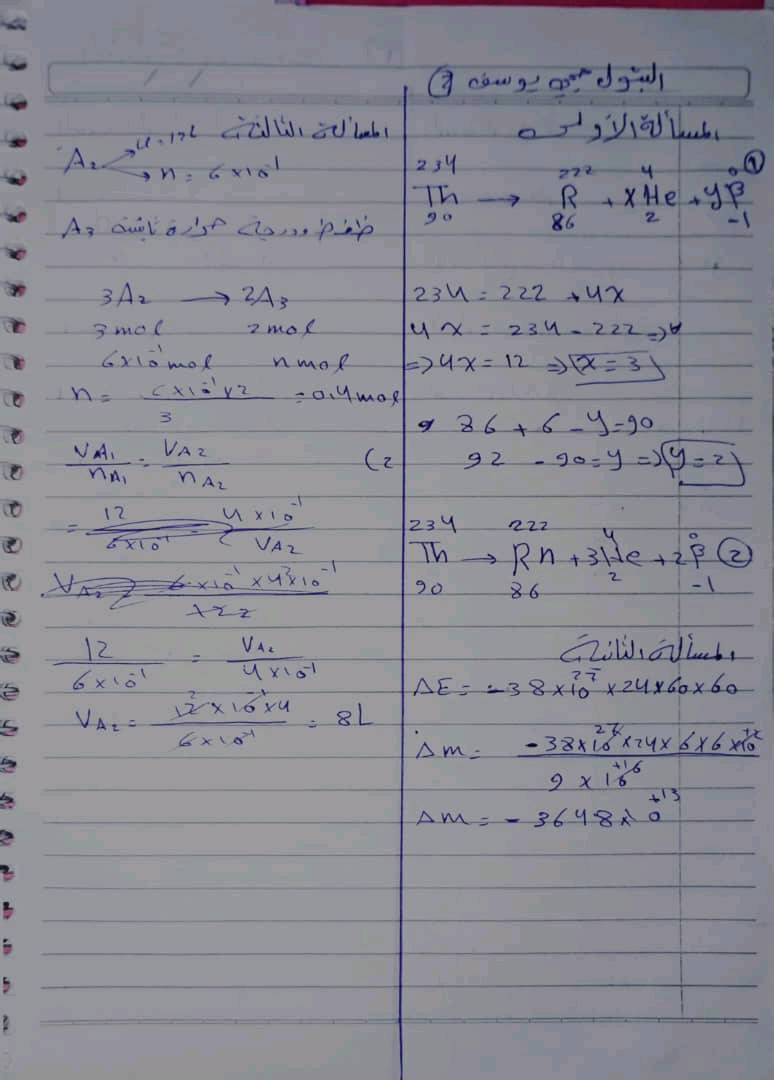 البتول يوسف
المسألة الأولى
①
²³⁴₉₀Th → ²²²₈₆R + x⁴₂He + y⁰₋₁β
234 = 222 + 4x
4x = 234 - 222 ⇒
⇒ 4x = 12 ⇒ x = 3
86 + 6 - y = 90
92 - 90 = y ⇒ y = 2
②
²³⁴₉₀Th → ²²²₈₆Rn + 3⁴₂He + 2⁰₋₁β
المسألة الثانية
ΔE = -38×10²⁷×24×60×60
Δm = -38×10²⁷×24×6×6×10⁺² / 9×10⁺¹⁶
Δm = -3648×10⁺¹³
المسألة الثالثة
A₂
n = 6×10⁻¹
ضغط ودرجة حرارة ثابتة A₃
3A₂ → 2A₃
3 mol 2 mol
6×10⁻¹ mol n mol
n = 6×10⁻¹×2 / 3 = 0,4 mol
(2
V_A₁ / n_A₁ = V_A₂ / n_A₂
= 12 / 6×10⁻¹ = 4×10⁻¹ / V_A₂
12 / 6×10⁻¹ = V_A₂ / 4×10⁻¹
V_A₂ = 12×10⁻¹×4 / 6×10⁻¹ = 8L